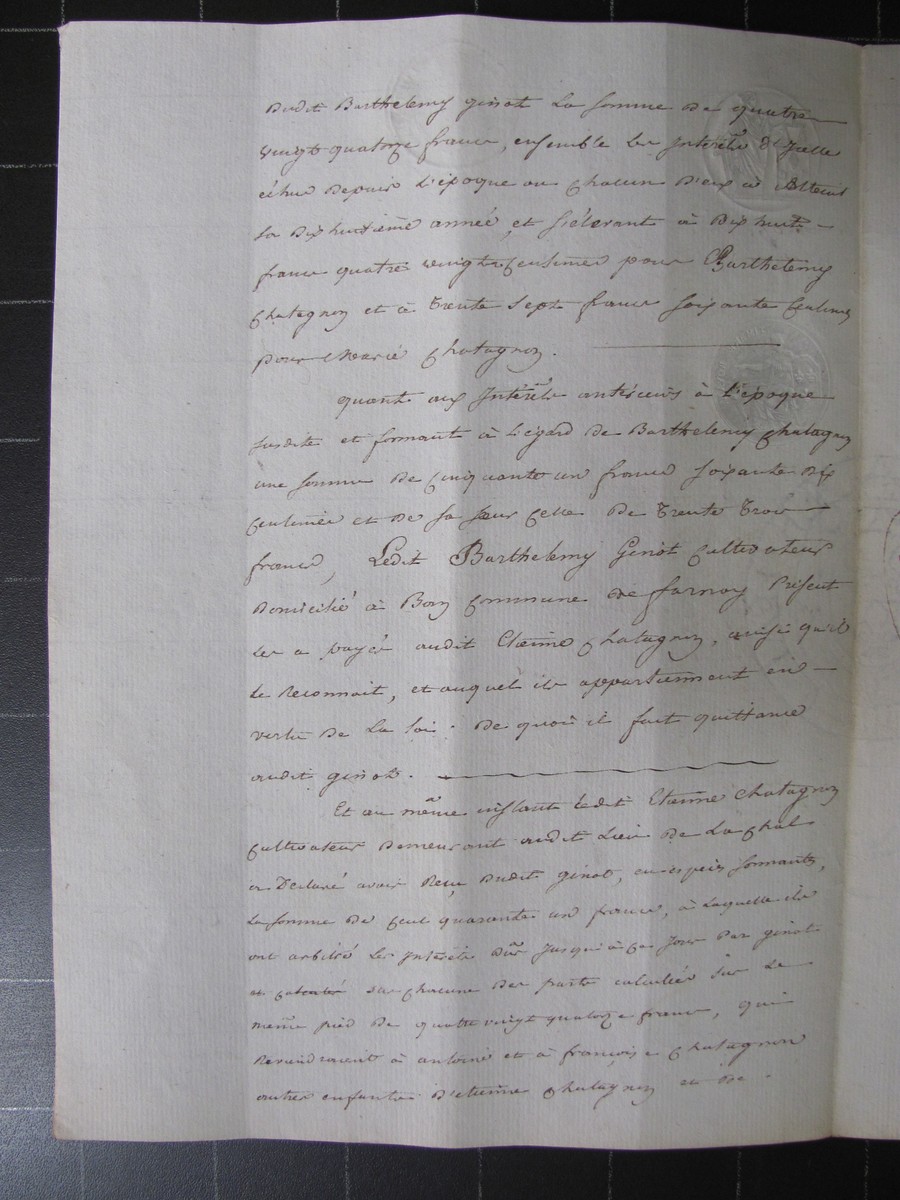 Dudit Barthelemy ginot La somme De quatre
vingt quatorze francs, ensemble les Intérêts d'Icelle
échus Depuis L'époque ou Chacun D'eux à atteint
sa Dixhuitième année, et s'élevant à Dix huit
francs quatre vingts Centimes pour Barthelemy
Chatagnon et à Trente sept francs soixante Centimes
pour Marie Chatagnon.
quant aux Intérêts antérieurs à L'époque
susdite et formant à L'égard de Barthelemy Chatagnon
une somme De Cinquante un francs soixante Dix
Centimes et De sa sœur Celle De Trente Trois
francs, Ledit Barthelemy Ginot Cultivateur
Domicilié à Bon Commune de farnay Présent
les a payés audit Etienne Chatagnon, ainsi qu'il
le Reconnait, et auquel ils appartiennent en
vertu De La loi. De quoi il fait quittance
audit ginot.
Et au même instant ledit Etienne Chatagnon
Cultivateur Demeurant audit Lieu De La Chal
a Déclaré avoir Reçu Dudit ginot, en espèces sonnantes,
La somme De Cent quarante un francs, à Laquelle ils
ont arbitré Les Intérêts Dûs Jusqu'à Ce Jour Par ginot
et calculés sur chacune Des parts calculées sur Le
même pied De quatre vingt quatorze francs, qui
Reviendraient à antoine et à françoise Chatagnon
autres enfants D'etienne Chatagnon et De